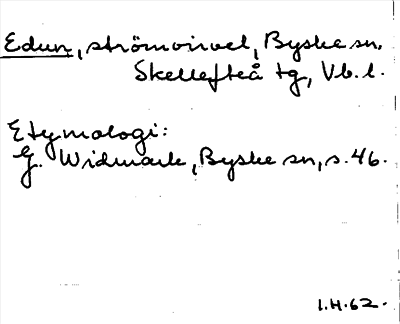 Edun, strömvirvel, Byske sn.
Skellefteå tg, Vb. l.
Etymologi:
G. Widmark, Byske sn, s. 46.
I.H. 62.